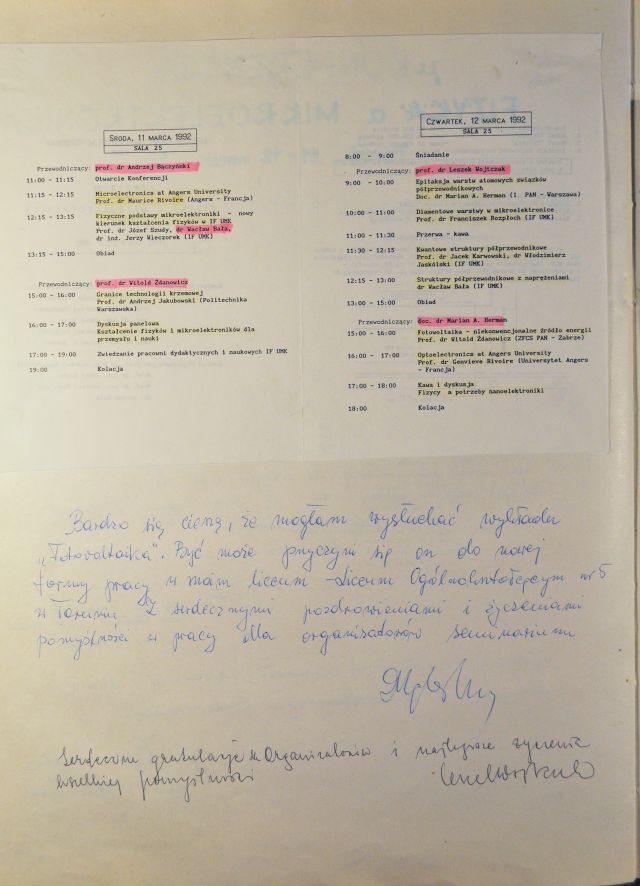 ŚRODA, 11 MARCA 1992
SALA 25
Przewodniczący: prof. dr Andrzej Bączyński
11:00 - 11:15 Otwarcie Konferencji
11:15 - 12:15 Microelectronics at Angers University
Prof. dr Maurice Rivoire (Angers - Francja)
12:15 - 13:15 Fizyczne podstawy mikroelektroniki - nowy
kierunek kształcenia fizyków w IF UMK
Prof. dr Józef Szudy, dr Wacław Bała,
dr inż. Jerzy Wieczorek (IF UMK)
13:15 - 15:00 Obiad
Przewodniczący: prof. dr Witold Żdanowicz
15:00 - 16:00 Granice technologii krzemowej
Prof. dr Andrzej Jakubowski (Politechnika
Warszawska)
16:00 - 17:00 Dyskusja panelowa
Kształcenie fizyków i mikroelektroników dla
przemysłu i nauki
17:00 - 19:00 Zwiedzanie pracowni dydaktycznych i naukowych IF UMK
19:00 Kolacja
CZWARTEK, 12 MARCA 1992
SALA 25
8:00 - 9:00 Śniadanie
Przewodniczący: prof. dr Leszek Wojtczak
9:00 - 10:00 Epitaksja warstw atomowych związków
półprzewodnikowych
Doc. dr Marian A. Herman (I PAN - Warszawa)
10:00 - 11:00 Diamentowe warstwy w mikroelektronice
Prof. dr Franciszek Rozpłoch (IF UMK)
11:00 - 11:30 Przerwa - kawa
11:30 - 12:15 Kwantowe struktury półprzewodnikowe
Prof. dr Jacek Karwowski, dr Włodzimierz
Jaskólski (IF UMK)
12:15 - 13:00 Struktury półprzewodnikowe z naprężeniami
dr Wacław Bała (IF UMK)
13:00 - 15:00 Obiad
Przewodniczący: doc. dr Marian A. Herman
15:00 - 16:00 Fotowoltaika - niekonwencjonalne źródło energii
Prof. dr Witold Żdanowicz (ZFCS PAN - Zabrze)
16:00 - 17:00 Optoelectronics at Angers University
Prof. dr Genvieve Rivoire (Uniwersytet Angers
- Francja)
17:00 - 18:00 Kawa i dyskusja
Fizycy a potrzeby nanoelektroniki
18:00 Kolacja
Bardzo się cieszę, że mogłam wysłuchać wykładu
„Fotovoltaika". Być może przyczyni się on do nowej
formy pracy w moim liceum - Liceum Ogólnokształcącym nr 5
w Toruniu. Z serdecznymi pozdrowieniami i życzeniami
pomyślności w pracy dla organizatorów seminarium
Serdeczne gratulacje dla Organizatorów i najlepsze życzenia
wszelkiej pomyślności